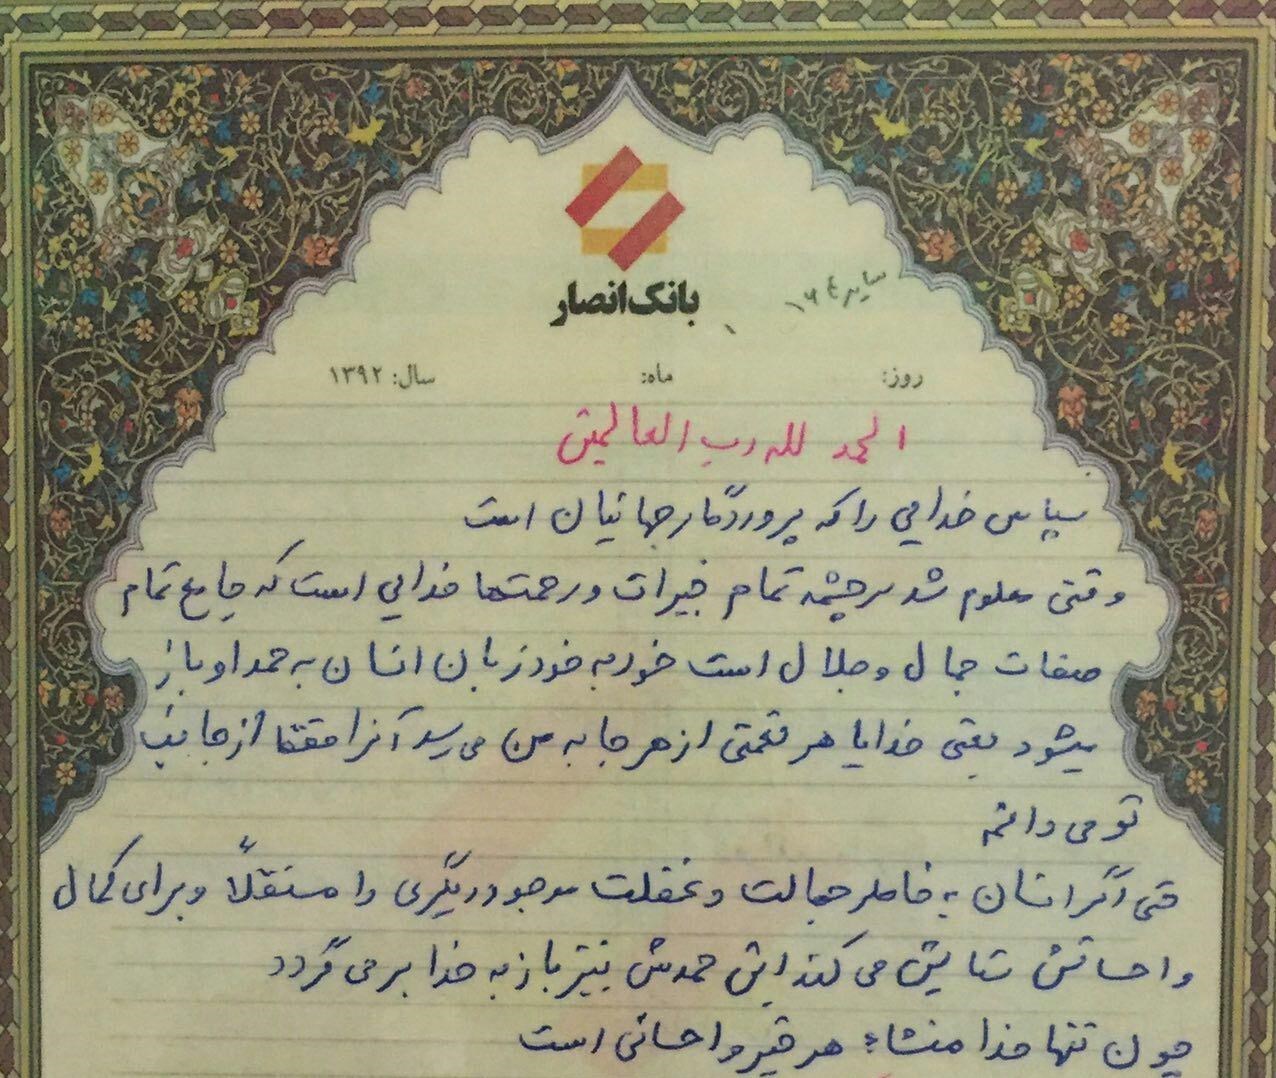 بانک انصار
سایر ١٦٤
روز: ماه: سال: ۱۳۹۲
الحمد لله رب العالمین
سپاس خدایی را که پروردگار جهانیان است
وقتی معلوم شد سرچشمه تمام خیرات و رحمتها خدایی است که جامع تمام
صفات جمال و جلال است خود به خود زبان انسان به حمد او باز
میشود یعنی خدایا هر نعمتی از هر جا به من می رسد آنرا حقیقتا از جانب
تو می دانم
حتی اگر انسان به خاطر جهالت و غفلت موجود دیگری را مستقلاً و برای کمال
و احسانش ستایش می کند این حمدش نیز باز به خدا بر می گردد
چون تنها خدا منشاء هر خیر و احسانی است